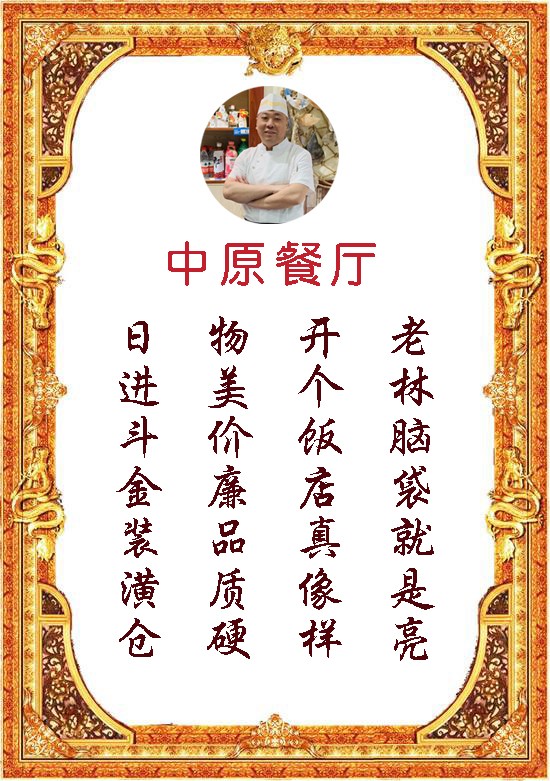 中原餐厅
老林脑袋就是亮
开个饭店真像样
物美价廉品质硬
日进斗金装潢仓